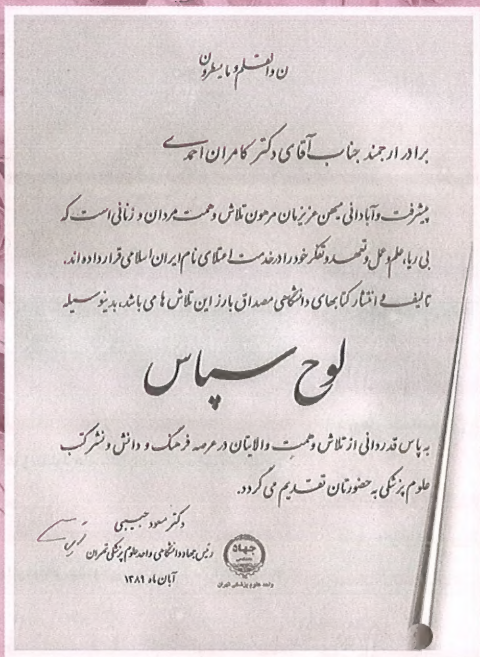 ن والقلم و ما یسطرون
برادر ارجمند جناب آقای دکتر کامران احمدی
پیشرفت و آبادانی میهن عزیزمان مرهون تلاش و همت مردان و زنانی است که
بی ریا، علم و عمل و تعهد و تفکر خود را در خدمت اعتلای نام ایران اسلامی قرار داده اند.
تالیف و انتشار کتابهای دانشگاهی مصداق بارز این تلاش ها می باشد، بدینوسیله
لوح سپاس
به پاس قدردانی از تلاش و همت والایتان در عرصه فرهنگ و دانش و نشر کتب
علوم پزشکی به حضورتان تقدیم می گردد.
دکتر مسعود حبیبی
رئیس جهاد دانشگاهی واحد علوم پزشکی تهران
آبان ماه ۱۳۸۹
جهاد
دانشگاهی
واحد علوم پزشکی تهران